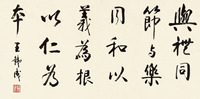 與禮同
節与樂
同和以
義為根
以仁為
本 王